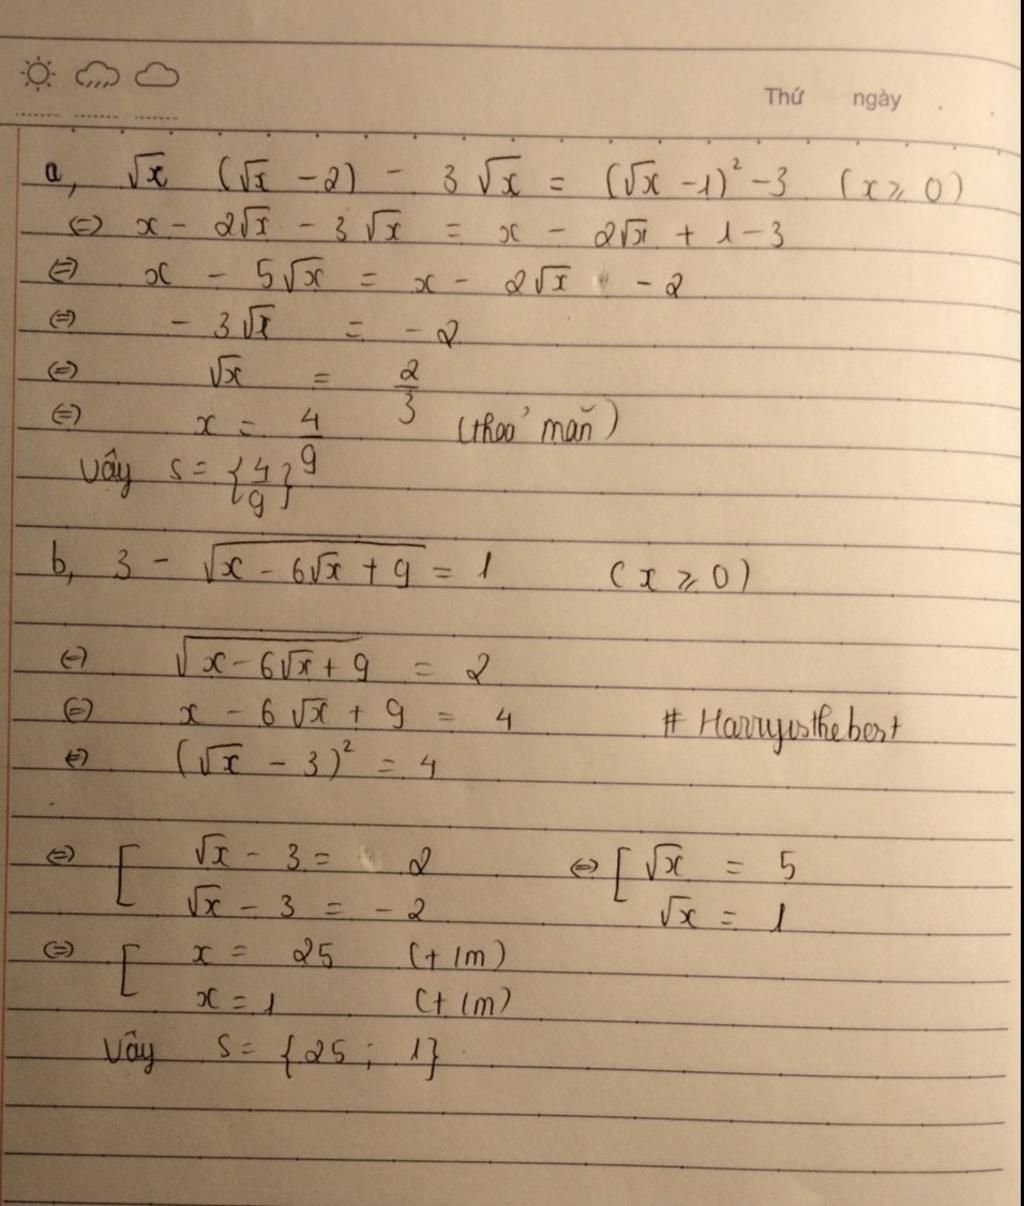 Thứ ngày
a, √x (√x - 2) - 3√x = (√x - 1)² - 3 (x ≥ 0)
⇔ x - 2√x - 3√x = x - 2√x + 1 - 3
⇔ x - 5√x = x - 2√x - 2
⇔ - 3√x = - 2
⇔ √x = 2/3
⇔ x = 4/9 (thoả mãn)
Vậy S = {4/9}
b, 3 - √(x - 6√x + 9) = 1 (x ≥ 0)
⇔ √(x - 6√x + 9) = 2
⇔ x - 6√x + 9 = 4 # Harryisthebest
⇔ (√x - 3)² = 4
⇔ [ √x - 3 = 2 ⇔ [ √x = 5
√x - 3 = - 2 √x = 1
⇔ [ x = 25 (t/m)
x = 1 (t/m)
Vậy S = {25 ; 1}